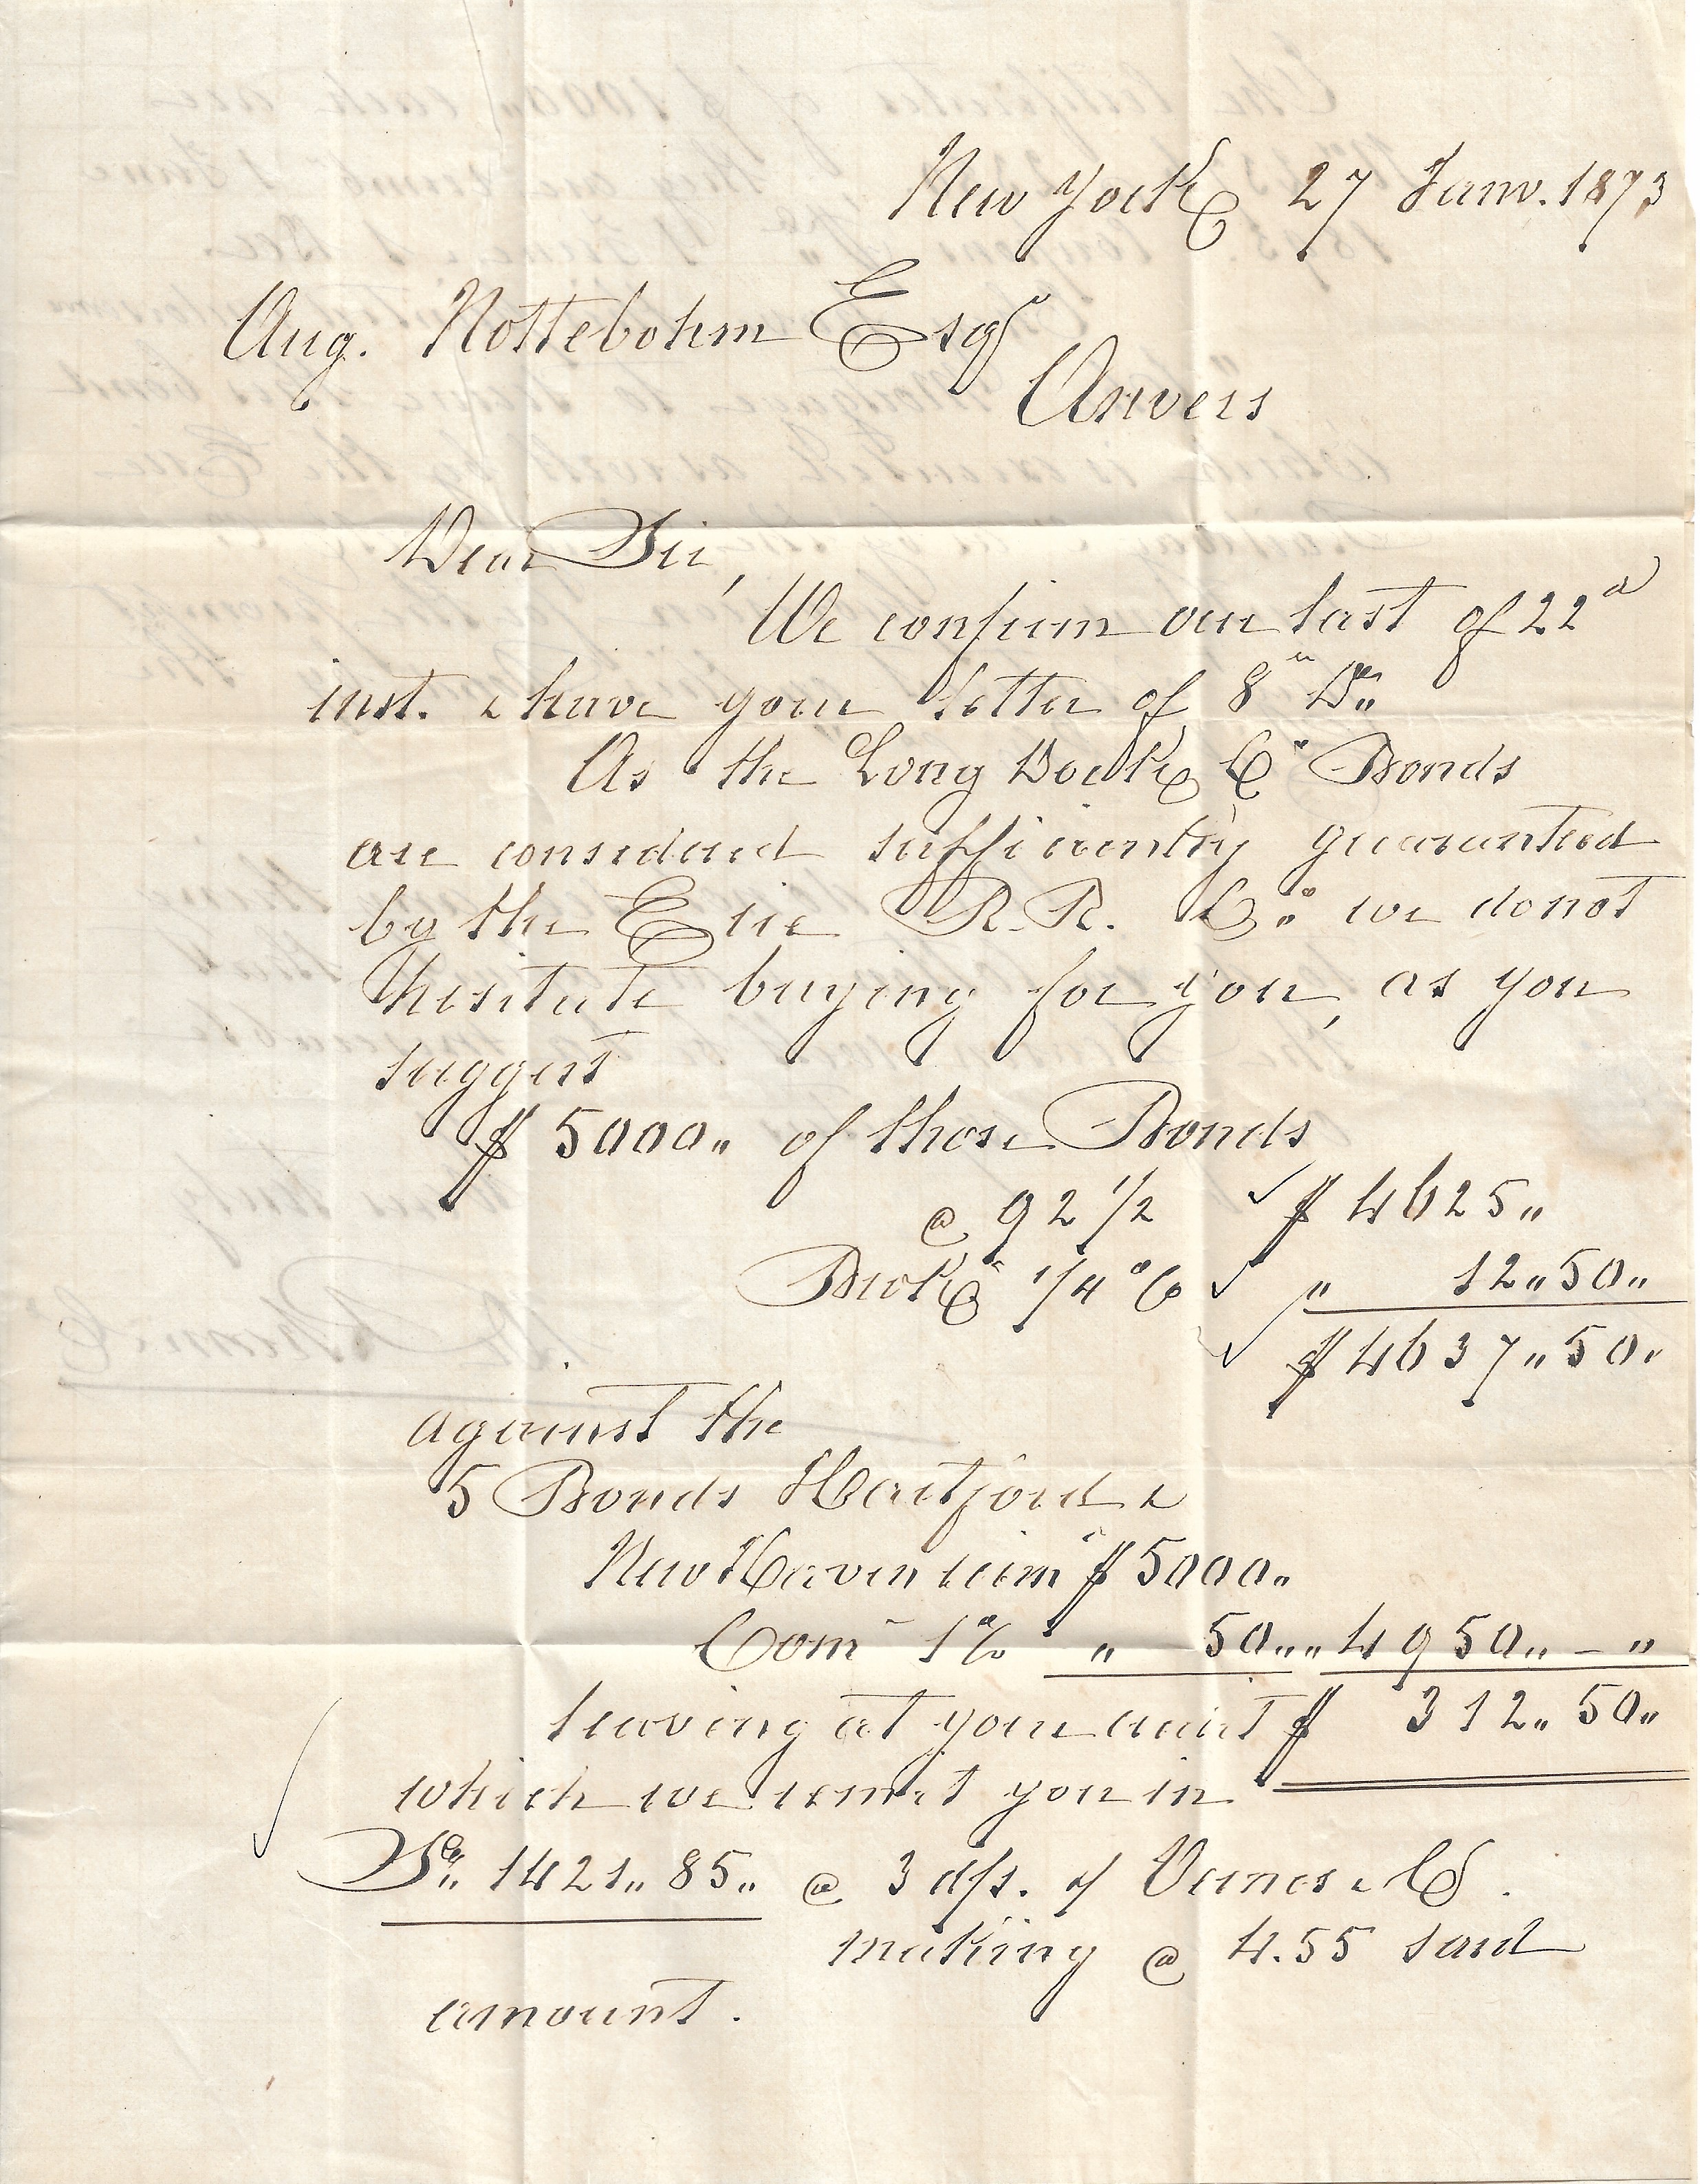 New York 27 Janv. 1873
Aug. Nottebohm Esqr
Anvers
Dear Sir,
We confirm our last of 22d
inst. & have your letter of 8th Do.
As the Long Dock Co Bonds
are considered sufficiently guaranteed
by the Erie R.R. Co. we do not
hesitate buying for you, as you
suggest
$ 5000„ of those Bonds
@ 92 1/2 $ 4625„
Broke 1/4 % „ 12„50„
$ 4637„50„
against the
5 Bonds Hartford &
New Haven reimd $ 5000„
Comn 1% „ 50„ „ 4950„ – „
leaving at your credit $ 312„ 50„
which we remit you in
1421„ 85„ @ 3 d/s. of &Co.
making @ 4.55 said
amount.